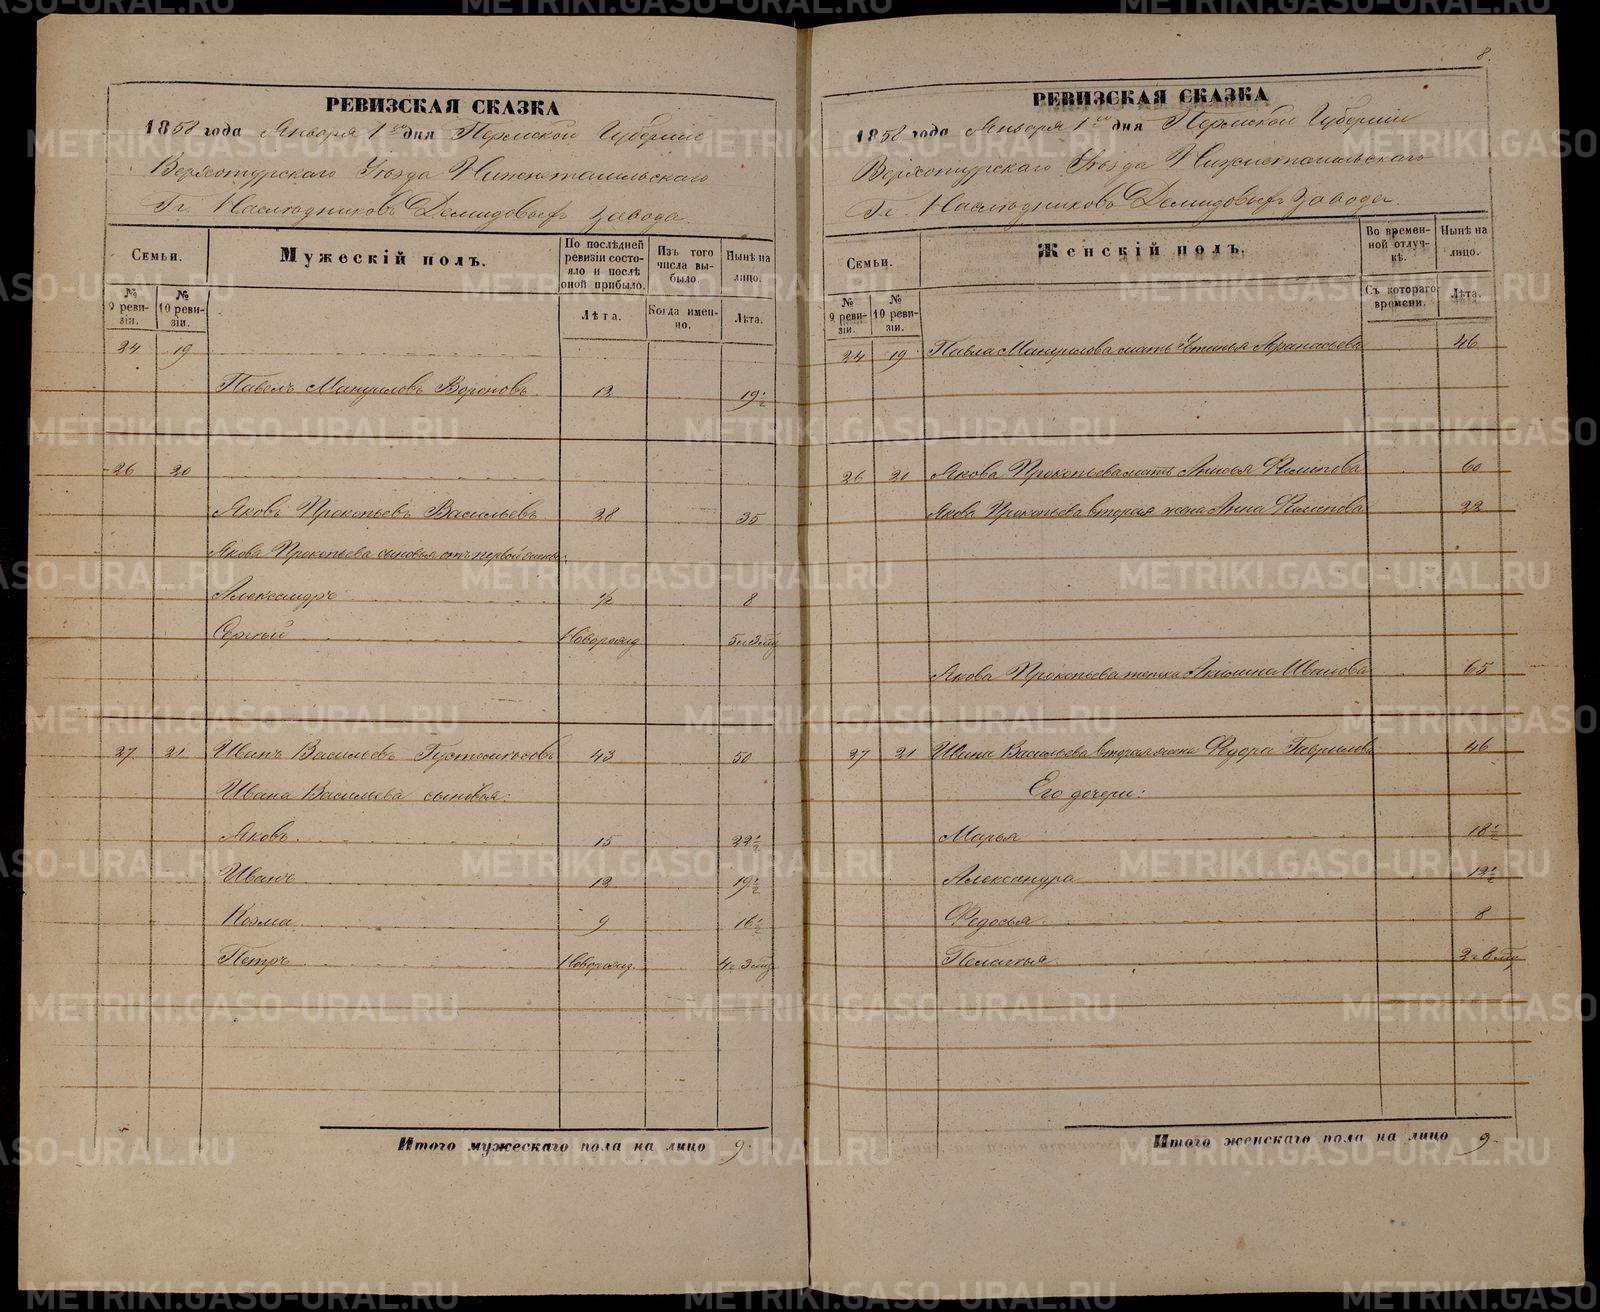 8.
РЕВИЗСКАЯ СКАЗКА
1858 года Января 1го дня Пермской Губернiи
Верхотурскаго Уѣзда Нижнетагильскаго
Гг. Наслѣдниковъ Демидовыхъ завода.
Семьи.
Мужескій полъ.
По послѣдней ревизіи состояло и послѣ оной прибыло.
Изъ того числа выбыло.
Нынѣ на лицо.
№ 9 ревизіи.
№ 10 ревизіи.
Лѣта.
Когда именно.
Лѣта.
24 19
Павелъ Мануиловъ Вороновъ 12 19½
26 20
Яковъ Прокопьевъ Васильевъ 28 35
Якова Прокопьева сыновья отъ первой жены:
Александръ ½ 8
Сергѣй Новорожд 5 и 3 мѣц
27 21 Иванъ Васильевъ Густомѣсовъ 43 50
Ивана Васильева сыновья:
Яковъ 15 22½
Иванъ 12 19½
Козма 9 16½
Петръ Новорожд. 4 и 3 мѣц
Итого мужескаго пола на лицо 9.
РЕВИЗСКАЯ СКАЗКА
1858 года Января 1го дня Пермской Губернiи
Верхотурскаго Уѣзда Нижнетагильскаго
Гг. Наслѣдниковъ Демидовыхъ завода.
Семьи.
Женскій полъ.
Во временной отлучкѣ.
Нынѣ на лицо.
№ 9 ревизіи.
№ 10 ревизіи.
Съ котораго времени.
Лѣта.
24 19 Павла Мануилова мать Устинья Афанасьева 46
26 20 Якова Прокопьева мать Анисья Филипова 60
Якова Прокопьева вторая жена Анна Филипова 22
Якова Прокопьева тетка Акилина Иванова 65
27 21 Ивана Васильева вторая жена Федора Гаврилова 46
Его дочери:
Марья 18½
Александра 12½
Федосья 8
Пелагѣя 2 и 8 мѣц
Итого женскаго пола на лицо 9.
METRIKI.GASO-URAL.RU